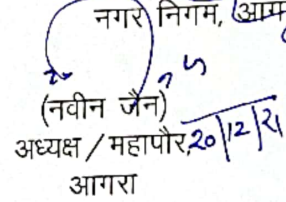 नगर निगम,
(नवीन जैन)
अध्यक्ष / महापौर, 20/12/21
आगरा